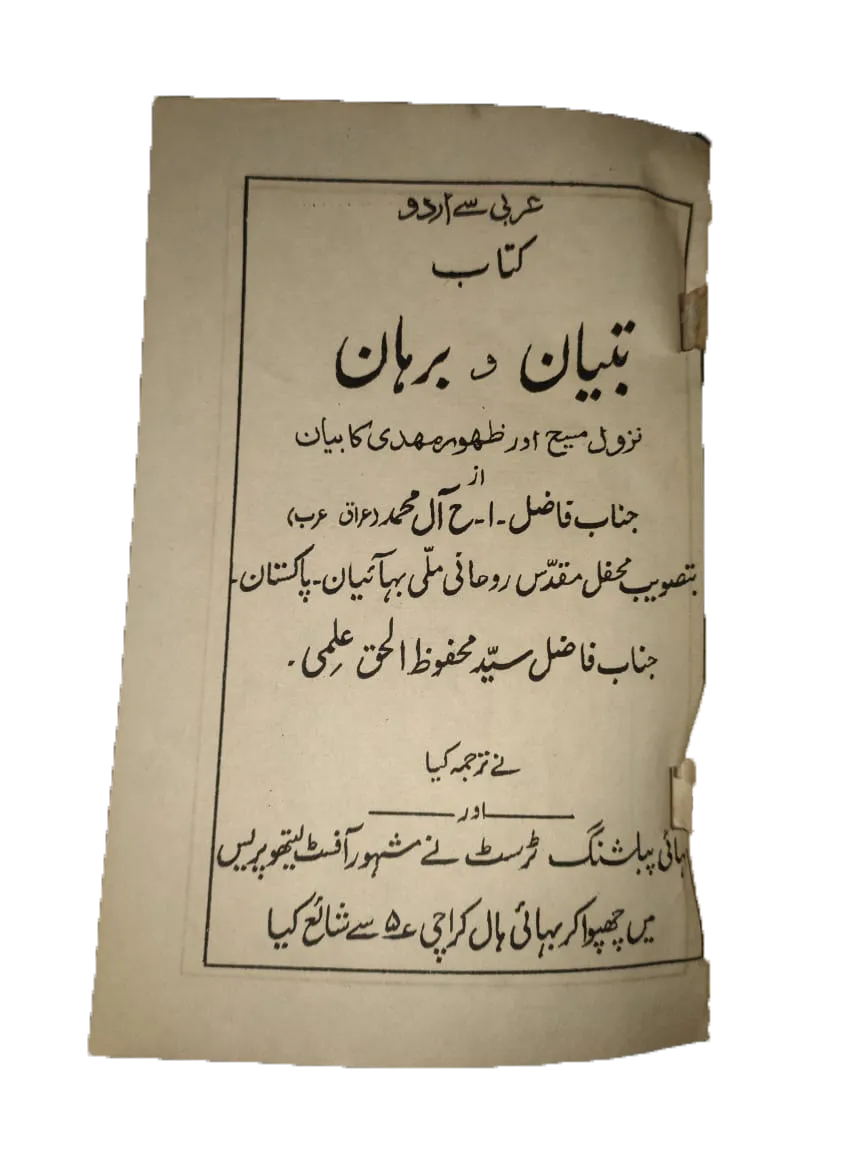 عربی سے اردو
کتاب
تبیان و برہان
نزول مسیح اور ظہور مہدی کا بیان
از
جناب فاضل ۔ ا ۔ ح آل محمد (عراق عرب)
بتصویب محفل مقدّس روحانی ملّی بہآئیان ۔ پاکستان ۔
جناب فاضل سیّد محفوظ الحق علمِی ۔
نے ترجمہ کیا
اور
ہائی پبلشنگ ٹرسٹ نے مشہور آفسٹ لیتھو پریس
میں چھپوا کر بہائی ہال کراچی ۵ سے شائع کیا